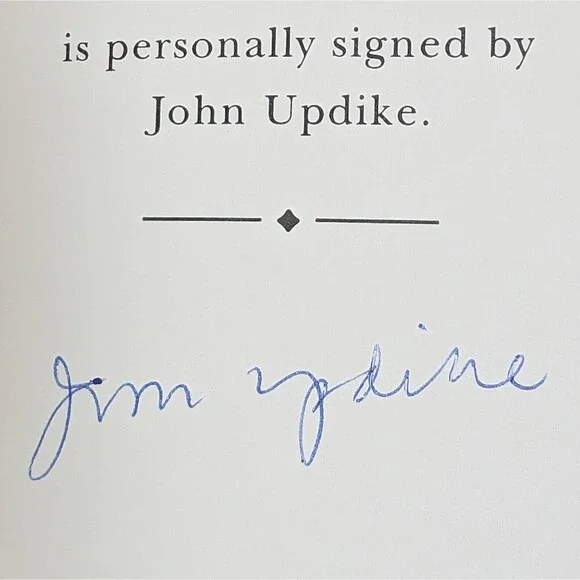 is personally signed by
John Updike.
John Updike